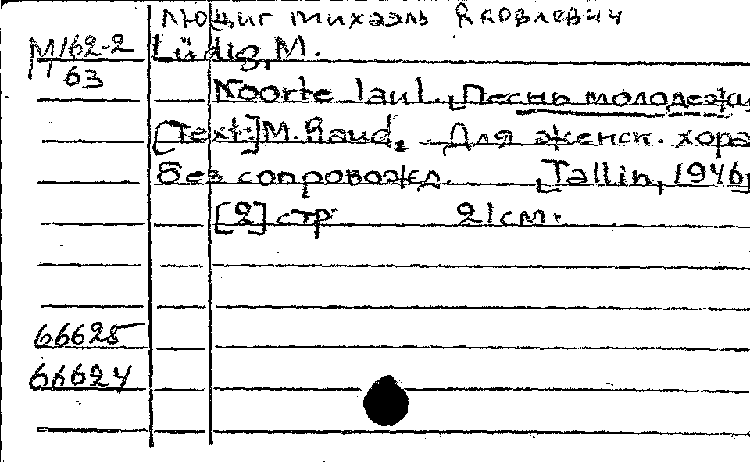 Люциг Михаэль Яковлевич
М/62-2 Lüdig, M.
63
Noorte laul. [Песнь молодежи.
[Text:] M. Raud. Для женск. хора
без сопровожд. [Tallin, 1946]
[2] стр. 21 см.
66625
66624